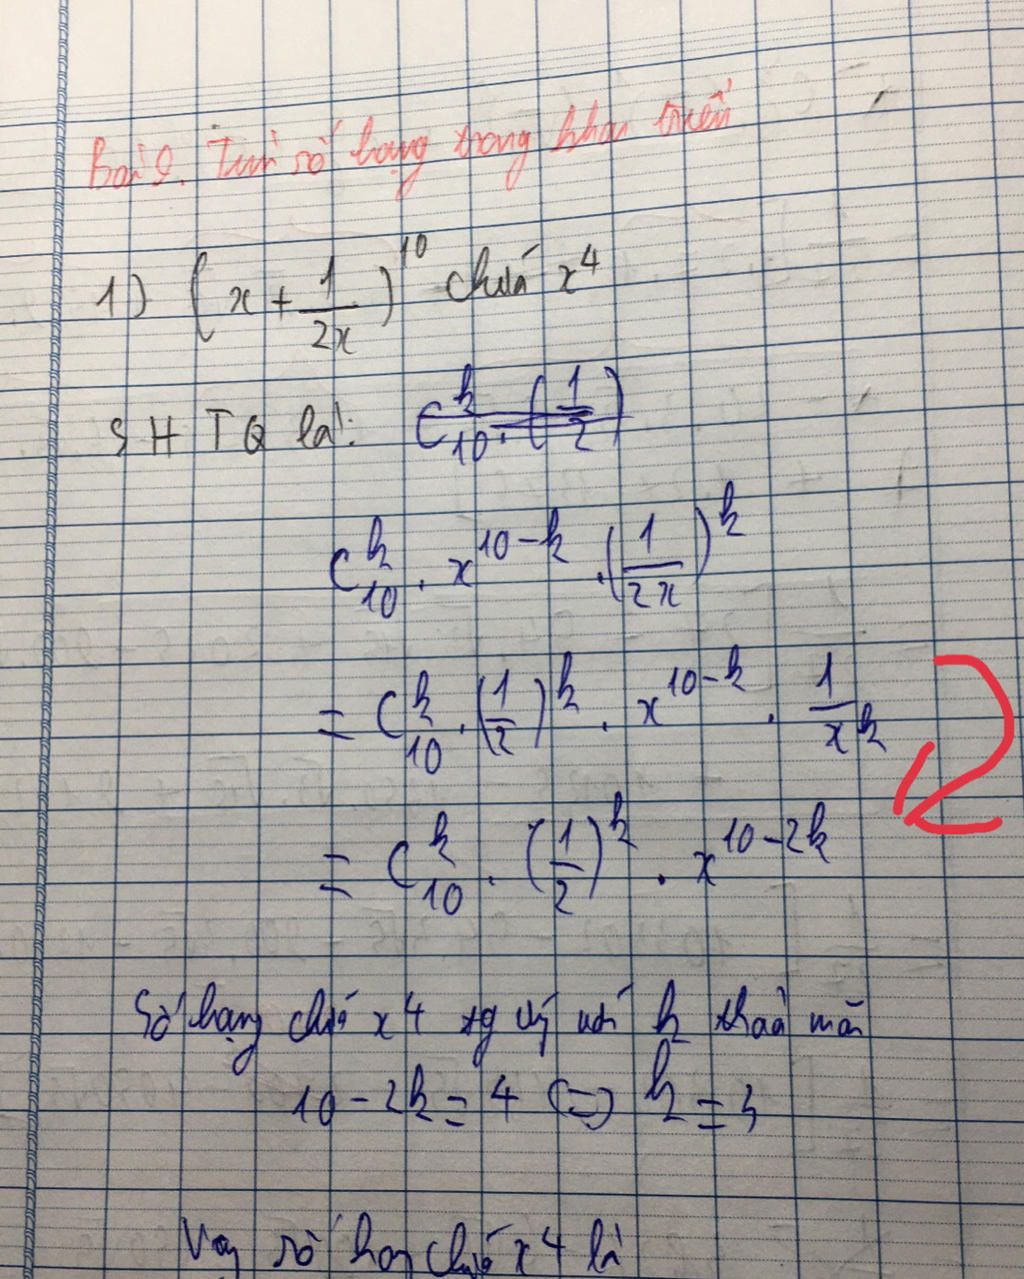 Bài 9. Tìm số hạng trong khai triển
1) (x + 1/2x)^10 chứa x^4
SHTQ là: C_10^k . (1/2)
C_10^k . x^(10-k) . (1/2x)^k
= C_10^k . (1/2)^k . x^(10-k) . 1/x^k
= C_10^k . (1/2)^k . x^(10-2k)
Số hạng chứa x^4 tg ứng với k thoả mãn
10 - 2k = 4 (=) k = 3
Vậy số hạng chứa x^4 là